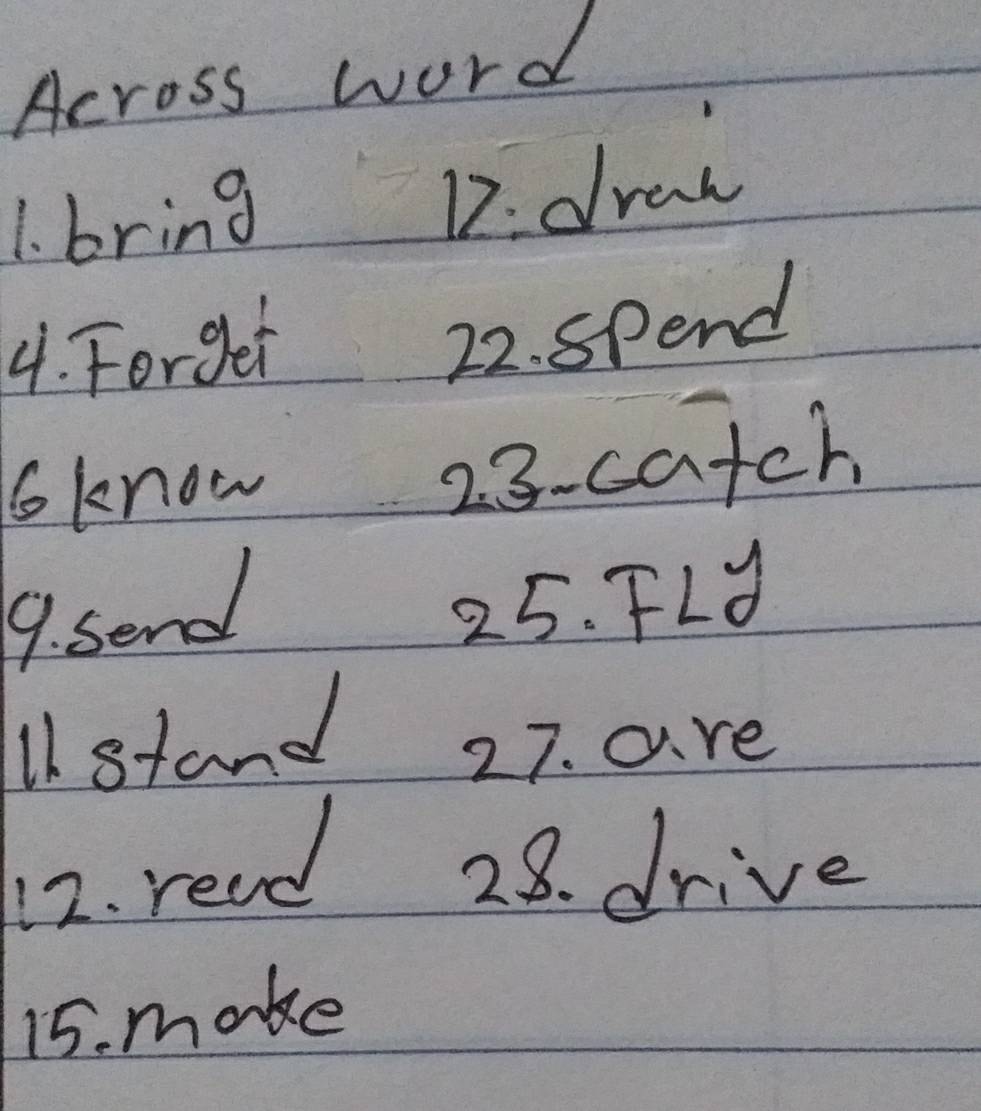 Across word
1. bring 17.
4. Forget 22. spend
6 know 23. catch
9. send 25. FLy
11. stand 27. are
12. read 28. drive
15. make